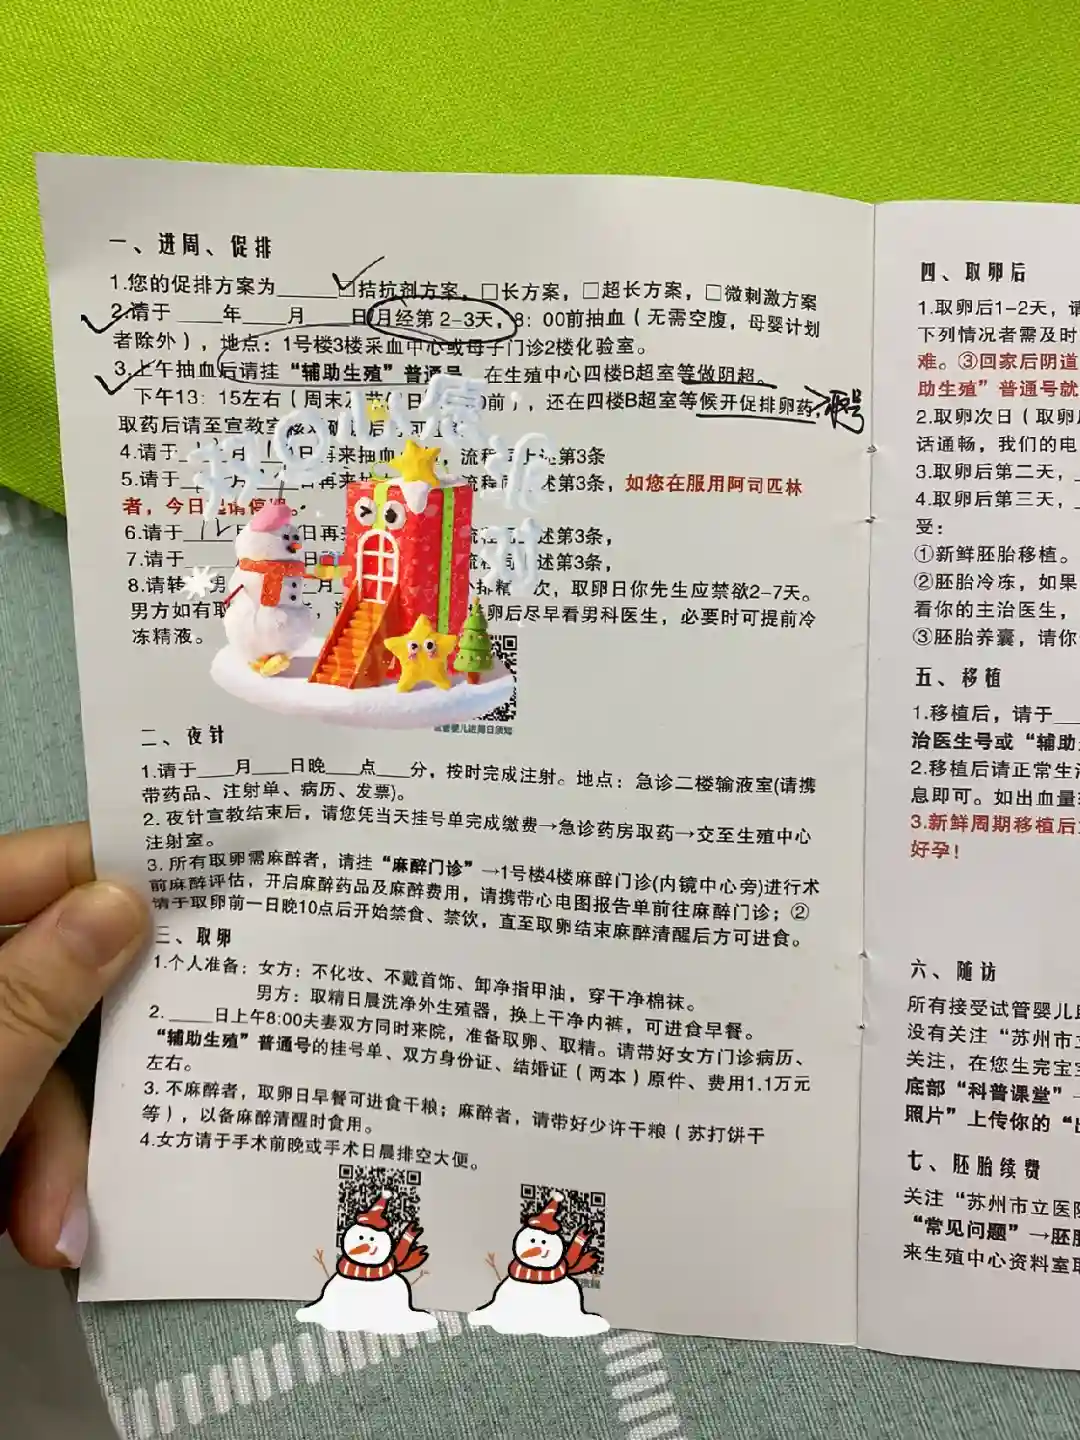 一、进周、促排
1.您的促排方案为_____□拮抗剂方案，□长方案，□超长方案，□微刺激方案
2.请于 ____年____月____日月经第 2-3天，8：00前抽血（无需空腹，母婴计划
者除外），地点：1号楼3楼采血中心或母子门诊2楼化验室。
3.上午抽血后请挂“辅助生殖”普通号，在生殖中心四楼B超室等做阴超。
下午13：15左右（周末及节假日 00前），还在四楼B超室等候开促排卵药
取药后请至宣教室核对确 后 可
4.请于 月 日再来抽血 ，流程同上述第3条
5.请于 月 日再来抽 流程同 述第3条，如您在服用阿司匹林
者，今日起请停 。
6.请于 12 月 日再来 流程同上述第3条，
7.请于 日 流程同 述第3条，
8.请转 男 月 排精 次，取卵日你先生应禁欲2-7天。
男方如有取 ，请 卵后尽早看男科医生，必要时可提前冷
冻精液。
管婴儿进周日须知
二、夜针
1.请于____月____日晚____点____分，按时完成注射。地点：急诊二楼输液室(请携
带药品、注射单、病历、发票)。
2. 夜针宣教结束后，请您凭当天挂号单完成缴费→急诊药房取药→交至生殖中心
注射室。
3. 所有取卵需麻醉者，请挂“麻醉门诊”→1号楼4楼麻醉门诊(内镜中心旁)进行术
前麻醉评估，开启麻醉药品及麻醉费用，请携带心电图报告单前往麻醉门诊；②
请于取卵前一日晚10点后开始禁食、禁饮，直至取卵结束麻醉清醒后方可进食。
三、取卵
1.个人准备：女方：不化妆、不戴首饰、卸净指甲油，穿干净棉袜。
男方：取精日晨洗净外生殖器，换上干净内裤，可进食早餐。
2. _____日上午8:00夫妻双方同时来院，准备取卵、取精。请带好女方门诊病历、
“辅助生殖”普通号的挂号单、双方身份证、结婚证（两本）原件、费用1.1万元
左右。
3. 不麻醉者，取卵日早餐可进食干粮；麻醉者，请带好少许干粮（苏打饼干
等），以备麻醉清醒时食用。
4.女方请于手术前晚或手术日晨排空大便。
四、取卵后
1.取卵后1-2天，请
下列情况者需及时
难。③回家后阴道
助生殖”普通号就
2.取卵次日（取卵后
话通畅，我们的电
3.取卵后第二天，
4.取卵后第三天，
受：
①新鲜胚胎移植。
②胚胎冷冻，如果
看你的主治医生，
③胚胎养囊，请你
五、移植
1.移植后，请于
治医生号或“辅助
2.移植后请正常生活
息即可。如出血量
3.新鲜周期移植后
好孕！
六、随访
所有接受试管婴儿助
没有关注“苏州市立
关注，在您生完宝宝
底部“科普课堂”→
照片”上传你的“出
七、胚胎续费
关注“苏州市立医院
“常见问题”→胚胎
来生殖中心资料室取